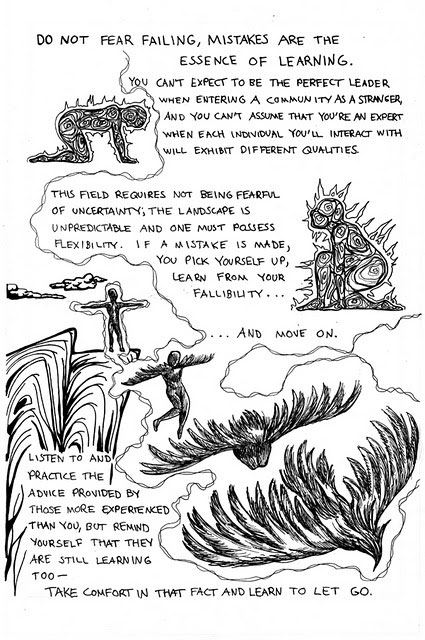 DO NOT FEAR FAILING, MISTAKES ARE THE
ESSENCE OF LEARNING.
YOU CAN'T EXPECT TO BE THE PERFECT LEADER
WHEN ENTERING A COMMUNITY AS A STRANGER,
AND YOU CAN'T ASSUME THAT YOU'RE AN EXPERT
WHEN EACH INDIVIDUAL YOU'LL INTERACT WITH
WILL EXHIBIT DIFFERENT QUALITIES.
THIS FIELD REQUIRES NOT BEING FEARFUL
OF UNCERTAINTY; THE LANDSCAPE IS
UNPREDICTABLE AND ONE MUST POSSESS
FLEXIBILITY. IF A MISTAKE IS MADE,
YOU PICK YOURSELF UP,
LEARN FROM YOUR
FALLIBILITY...
...AND MOVE ON.
LISTEN TO AND
PRACTICE THE
ADVICE PROVIDED BY
THOSE MORE EXPERIENCED
THAN YOU, BUT REMIND
YOURSELF THAT THEY
ARE STILL LEARNING
TOO—
TAKE COMFORT IN THAT FACT AND LEARN TO LET GO.